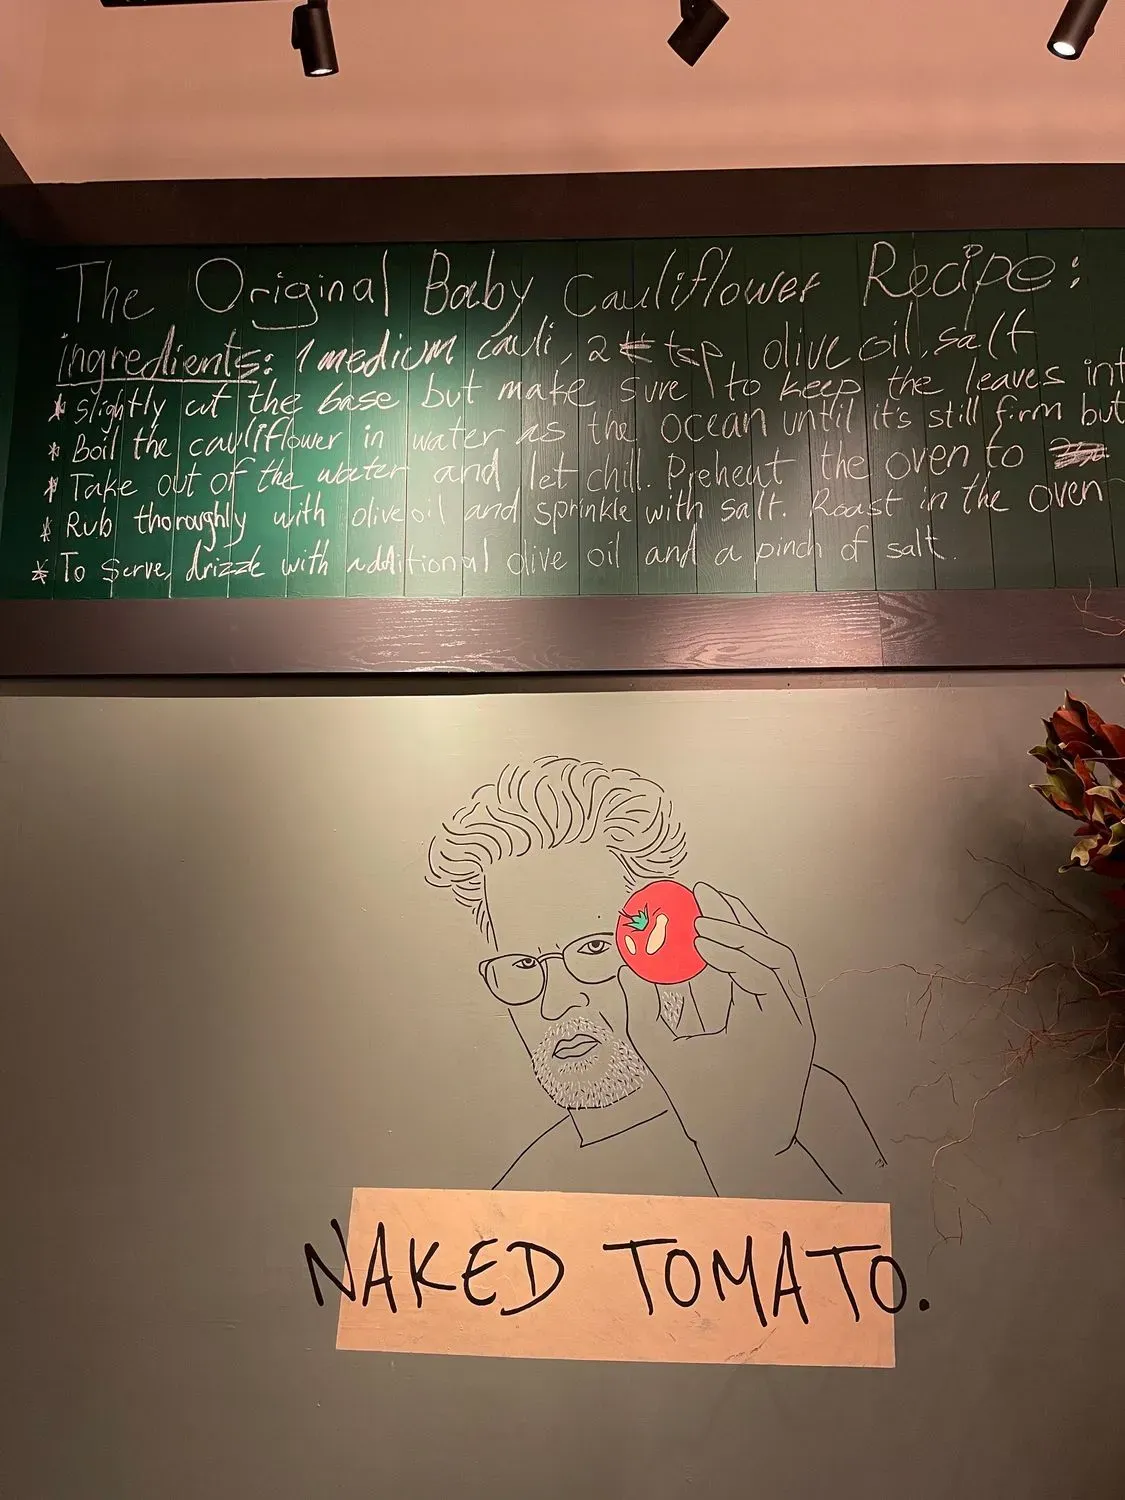 The Original Baby Cauliflower Recipe:
ingredients: 1 medium cauli, 2 tsp, olive oil, salt
* slightly cut the base but make sure to keep the leaves int
* Boil the cauliflower in water as the ocean until it's still firm but
* Take out of the water and let chill. Preheat the oven to
* Rub thoroughly with olive oil and sprinkle with salt. Roast in the oven
* To serve, drizzle with additional olive oil and a pinch of salt.
NAKED TOMATO.